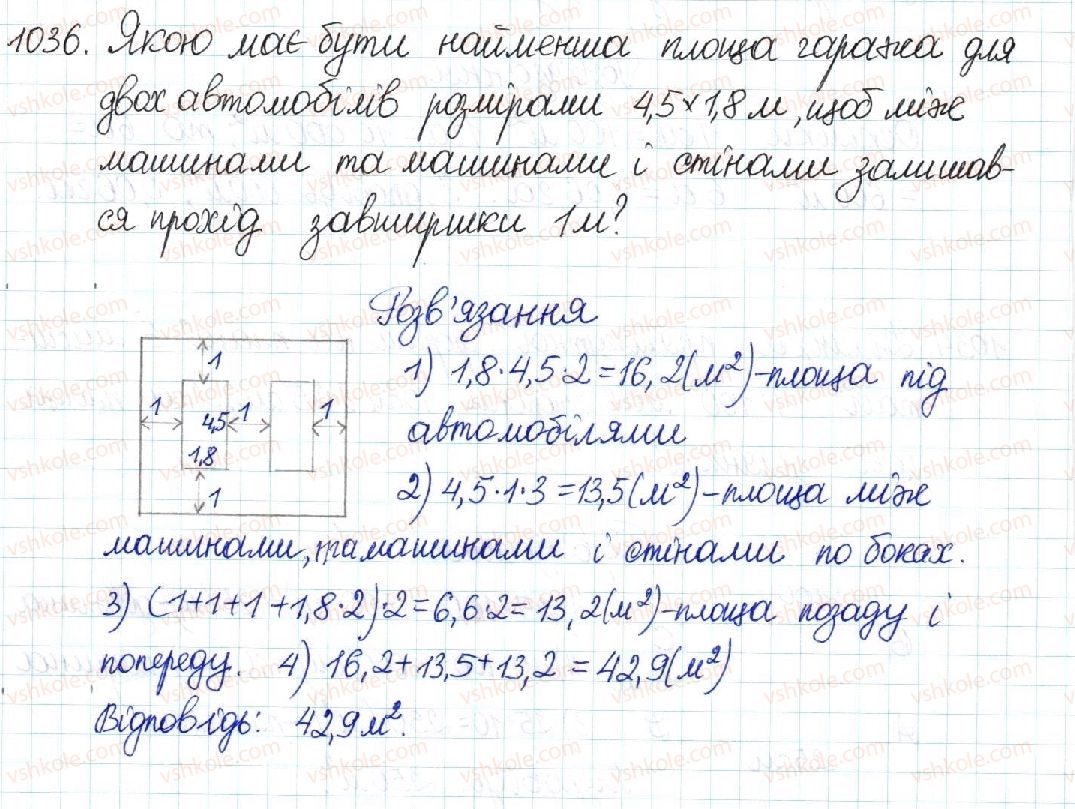 1036. Якою має бути найменша площа гаража для
двох автомобілів розмірами 4,5×1,8 м, щоб між
машинами та машинами і стінами залишав-
ся прохід завширшки 1 м?
Розв'язання
1
1
4,5
1
1
1,8
1
1) 1,8·4,5·2=16,2(м²)-площа під
автомобілями
2) 4,5·1·3=13,5(м²)-площа між
машинами, та машинами і стінами по боках.
3) (1+1+1+1,8·2)·2=6,6·2=13,2(м²)-площа позаду і
попереду. 4) 16,2+13,5+13,2=42,9(м²)
Відповідь: 42,9м².
vshkole.com